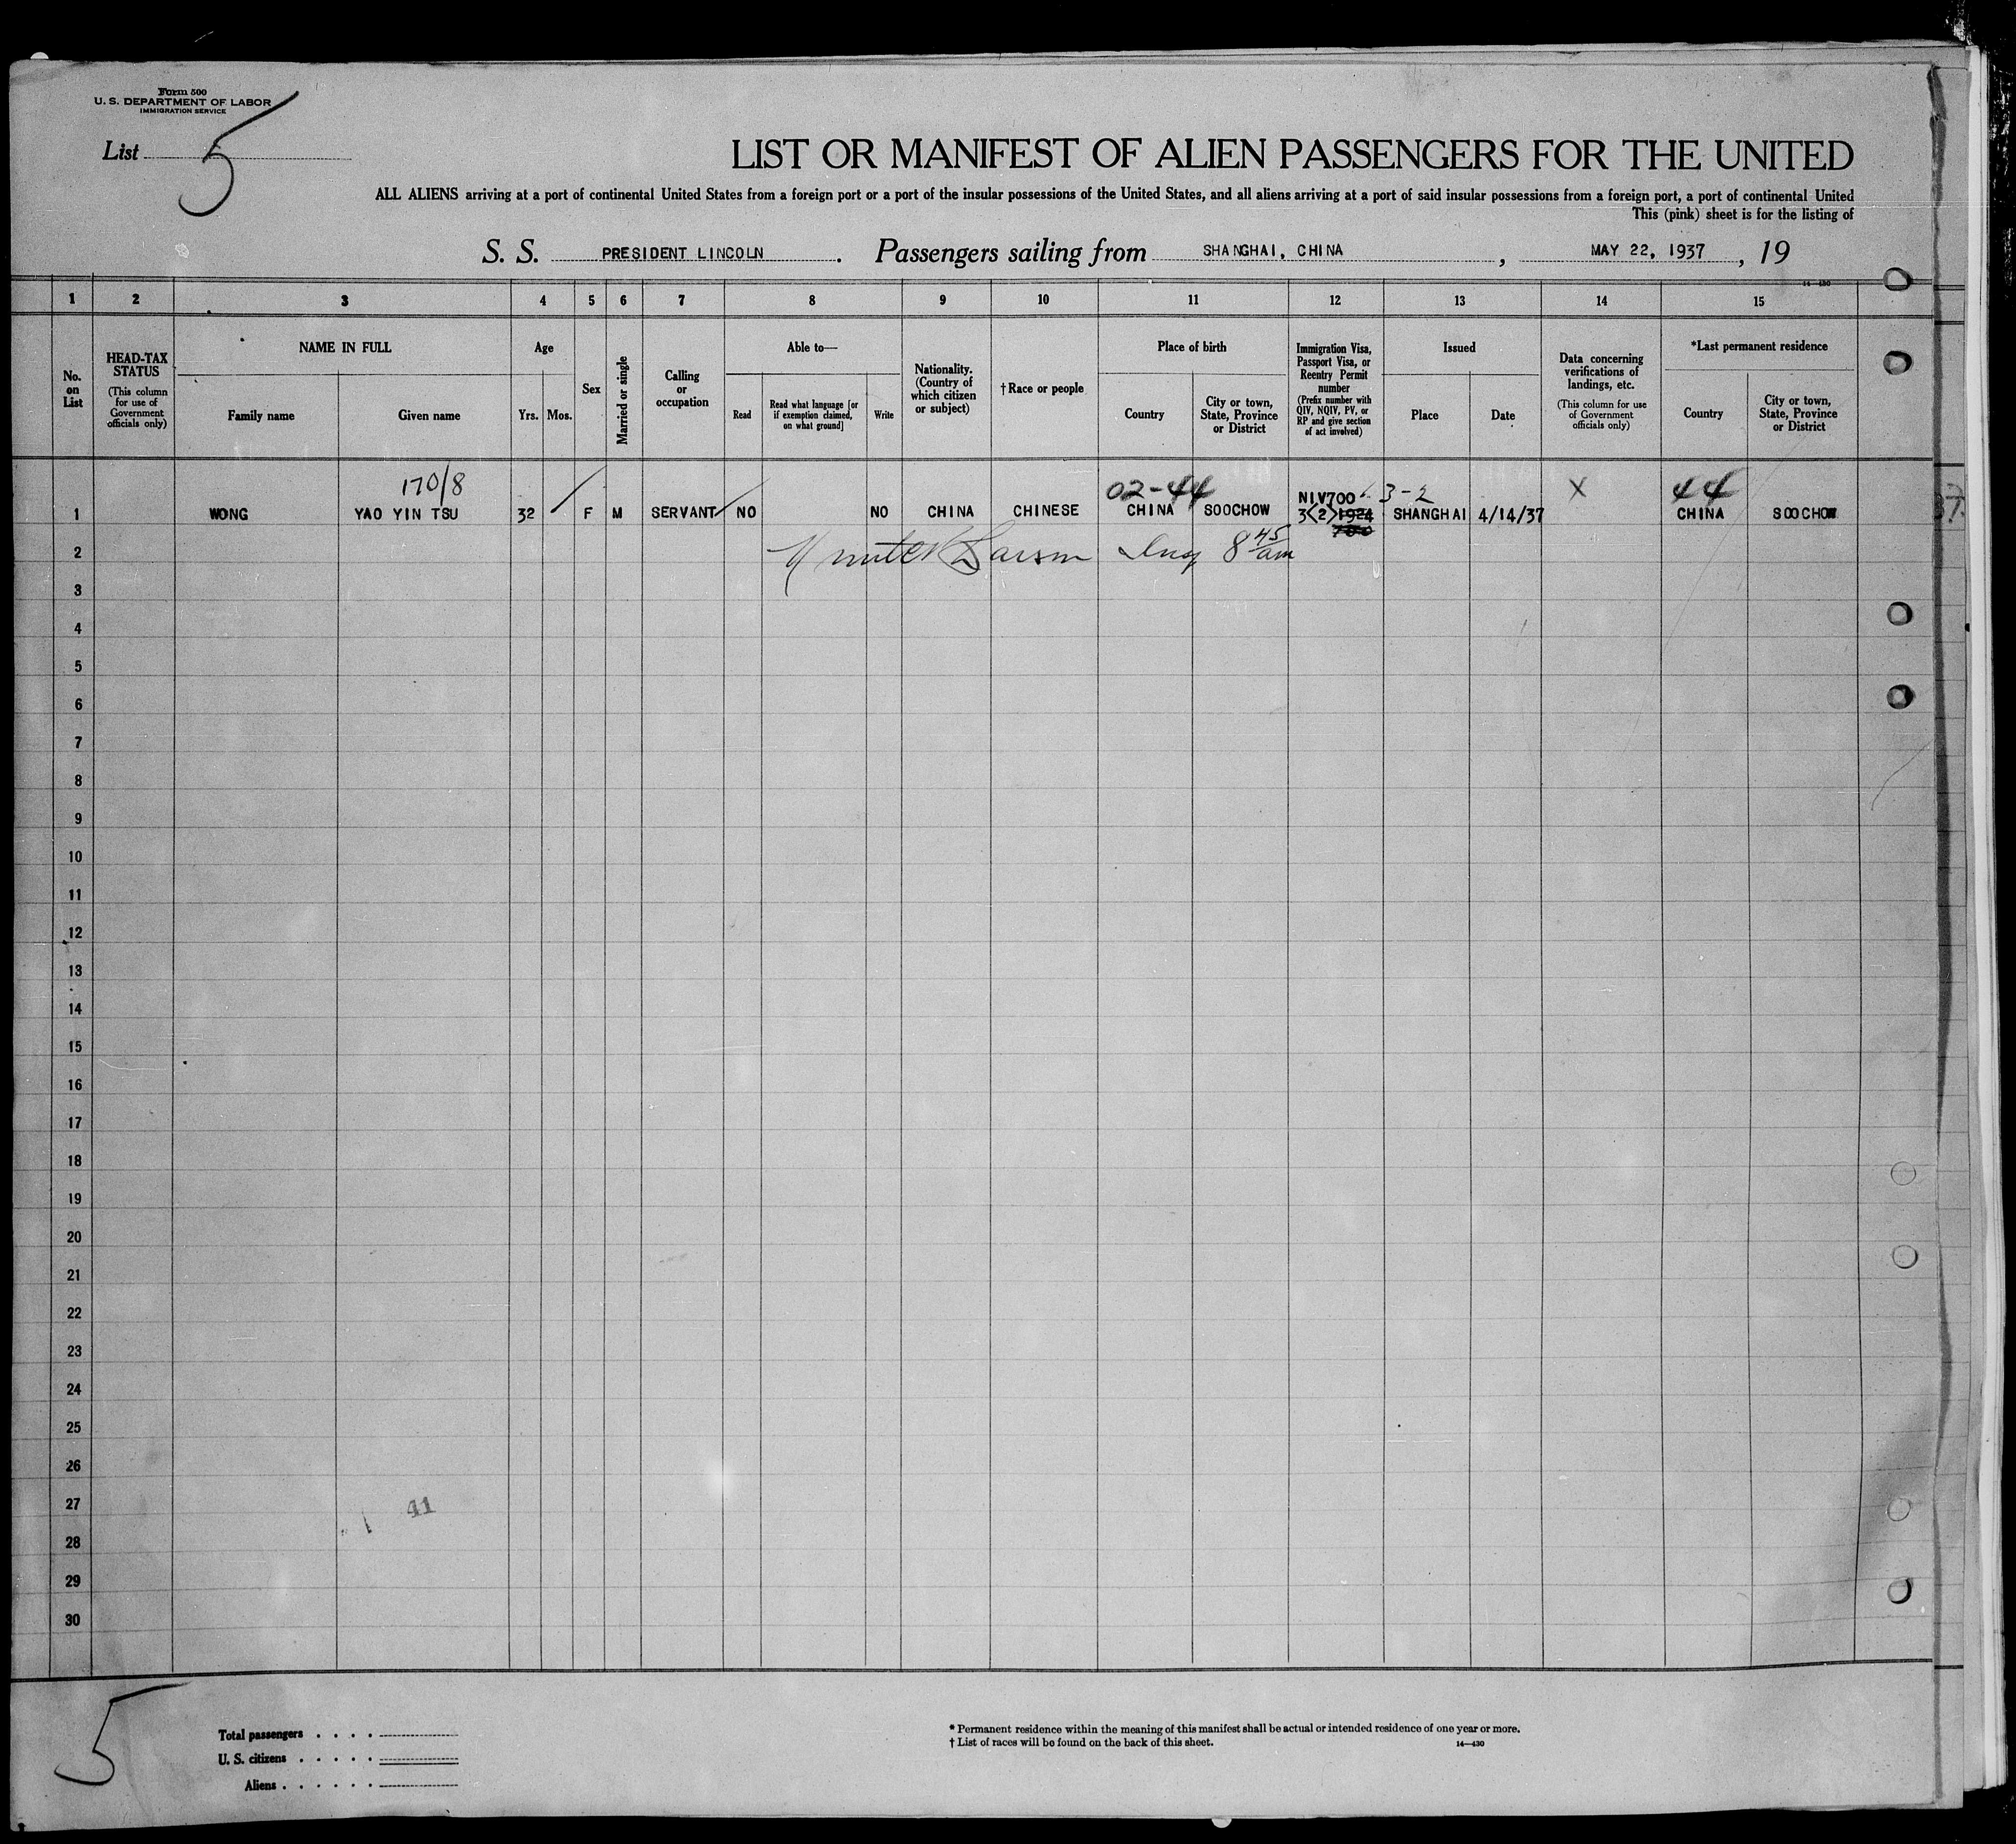 Form 500
U. S. DEPARTMENT OF LABOR
IMMIGRATION SERVICE
List 5
LIST OR MANIFEST OF ALIEN PASSENGERS FOR THE UNITED
ALL ALIENS arriving at a port of continental United States from a foreign port or a port of the insular possessions of the United States, and all aliens arriving at a port of said insular possessions from a foreign port, a port of continental United
This (pink) sheet is for the listing of
S. S. PRESIDENT LINCOLN . Passengers sailing from SHANGHAI, CHINA , MAY 22, 1937 , 19
14—430
1 2 3 4 5 6 7 8 9 10 11 12 13 14 15
No. on List
HEAD-TAX STATUS
(This column for use of Government officials only)
NAME IN FULL
Family name
Given name
Age
Yrs.
Mos.
Sex
Married or single
Calling or occupation
Able to—
Read
Read what language [or if exemption claimed, on what ground]
Write
Nationality. (Country of which citizen or subject)
† Race or people
Place of birth
Country
City or town, State, Province or District
Immigration Visa, Passport Visa, or Reentry Permit number
(Prefix number with QIV, NQIV, PV, or RP and give section of act involved)
Issued
Place
Date
Data concerning verifications of landings, etc.
(This column for use of Government officials only)
*Last permanent residence
Country
City or town, State, Province or District
170/8 02-44 NIV700 3-2 X 44
1 WONG YAO YIN TSU 32 F M SERVANT NO NO CHINA CHINESE CHINA SOOCHOW 3(2)1924 SHANGHAI 4/14/37 CHINA SOOCHOW
700
2 Larson 8 45 am
3
4
5
6
7
8
9
10
11
12
13
14
15
16
17
18
19
20
21
22
23
24
25
26
27 41
28
29
30
5
Total passengers
U. S. citizens
Aliens
* Permanent residence within the meaning of this manifest shall be actual or intended residence of one year or more.
† List of races will be found on the back of this sheet. 14—430